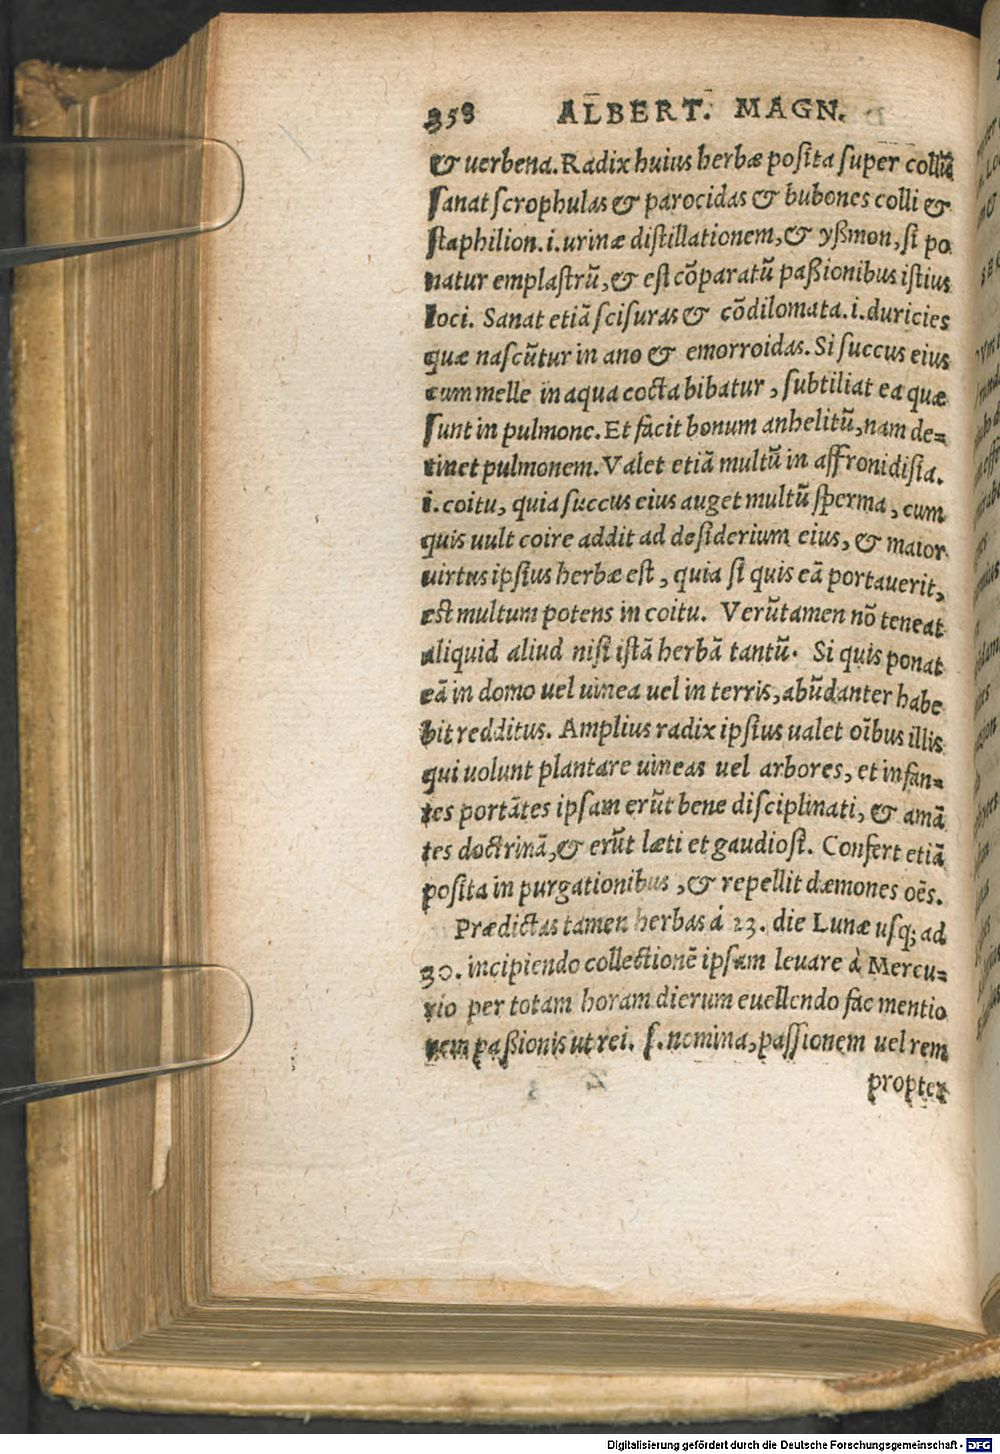 358 ALBERT. MAGN.
& uerbena. Radix huius herbæ posita super collũ
sanat scrophulas & parocidas & bubones colli &
staphilion. i. urinæ distillationem, & yßmon, si po
natur emplastrũ, & est cõparatũ paßionibus istius
loci. Sanat etiã scisuras & cõdilomata. i. duricies
quæ nascũtur in ano & emorroidas. Si succus eius
cum melle in aqua cocta bibatur, subtiliat ea quæ
sunt in pulmone. Et facit bonum anhelitũ, nam de=
tinet pulmonem. Valet etiã multũ in affronidisia.
i. coitu, quia succus eius auget multũ sperma, cum
quis uult coire addit ad desiderium eius, & maior
uirtus ipsius herbæ est, quia si quis eã portauerit,
est multum potens in coitu. Verũtamen nõ teneat
aliquid aliud nisi istã herbã tantũ. Si quis ponat
eã in domo uel uinea uel in terris, abũdanter habe
bit redditus. Amplius radix ipsius ualet oĩbus illis
qui uolunt plantare uineas uel arbores, et infan=
tes portãtes ipsam erũt bene disciplinati, & amã
tes doctrinã, & erũt læti et gaudiosi. Confert etiã
posita in purgationibus, & repellit dæmones oẽs.
Prædictas tamen herbas á 23. die Lunæ usq; ad
30. incipiendo collectionẽ ipsam leuare à Mercu=
rio per totam horam dierum euellendo fac mentio
nem paßionis ut rei. s. nomina, passionem uel rem
propter
Digitalisierung gefördert durch die Deutsche Forschungsgemeinschaft - DFG